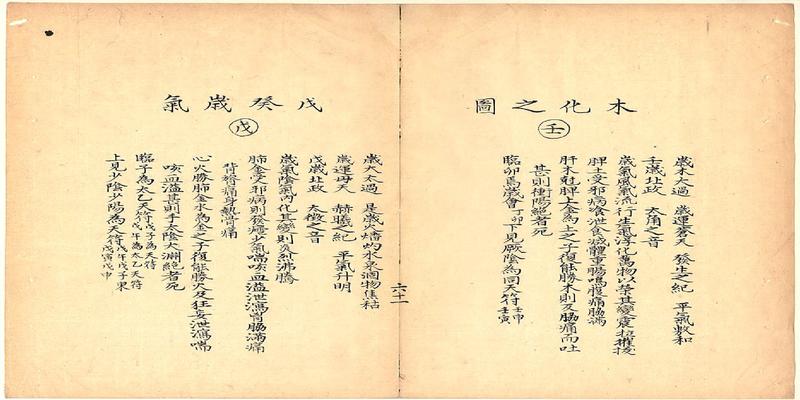 木化之圖
壬
歲木太過　歲運蒼天　發生之紀　平氣敷和
壬歲北政　太角之音
歲氣風氣流行生氣淳化萬物以榮其變震拉摧拔
脾土受邪病飧泄食減體重腸鳴腹痛脇滿
肝木尅脾土金為土之子復能勝木則反脇痛而吐
甚則衝陽絕者死
臨卯為歲會丁卯下見厥陰為同天符壬申壬寅
六十一
戊癸歲氣
戊
歲火太過　是歲火燔灼水泉涸物焦枯
歲運丹天　赫曦之紀　平氣升明
戊歲北政　太徵之音
歲氣陰氣內化其變則炎烈沸騰
肺金受邪病則發瘧少氣喘咳血溢泄瀉胷脇滿痛
背膂痛身熱骨痛
心火勝肺金水為金之子復能勝火反狂妄泄瀉喘
咳血溢甚則手太陰大淵絕者死
臨子為太乙天符戊子為天符戊午為太乙天符
上見少陰少陽為天符戊午戊子戊寅戊申